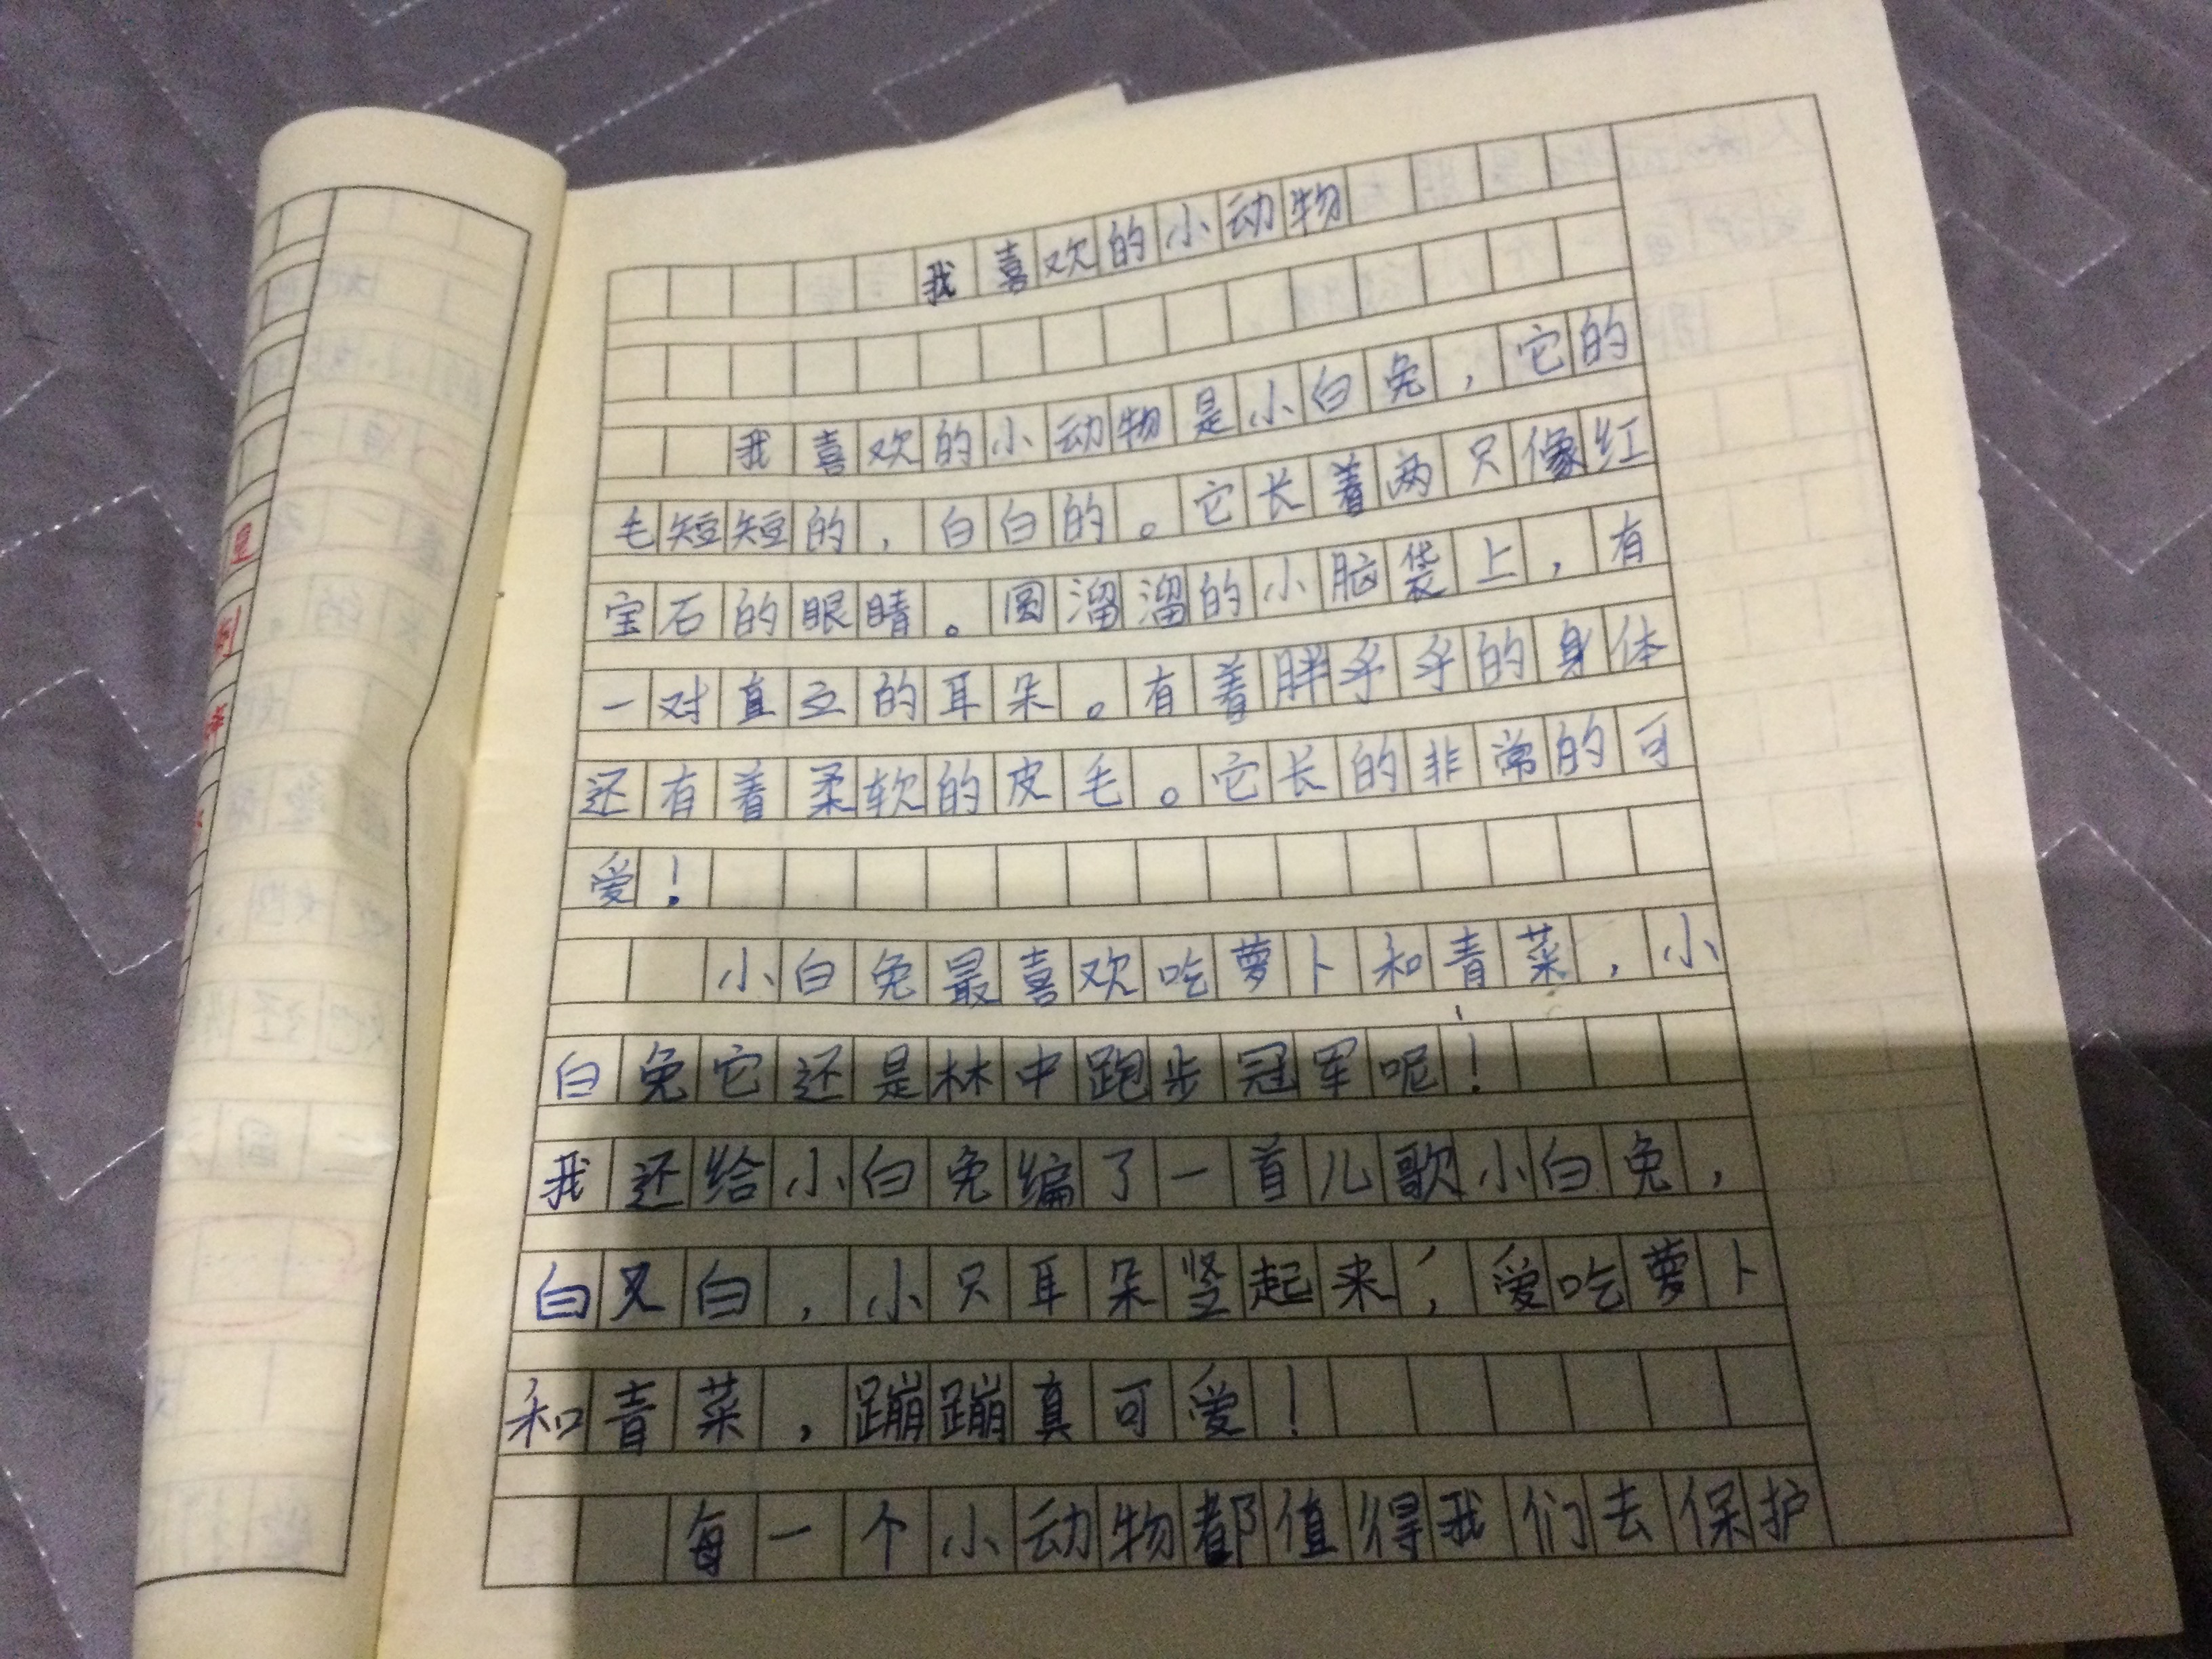 我喜欢的小动物
我喜欢的小动物是小白兔，它的
毛短短的，白白的。它长着两只像红
宝石的眼睛。圆溜溜的小脑袋上，有
一对直立的耳朵。有着胖乎乎的身体
还有着柔软的皮毛。它长的非常的可
爱！
小白兔最喜欢吃萝卜和青菜，小
白兔它还是林中跑步冠军呢！
我还给小白兔编了一首儿歌小白兔，
白又白，小只耳朵竖起来，爱吃萝卜
和青菜，蹦蹦真可爱！
每一个小动物都值得我们去保护